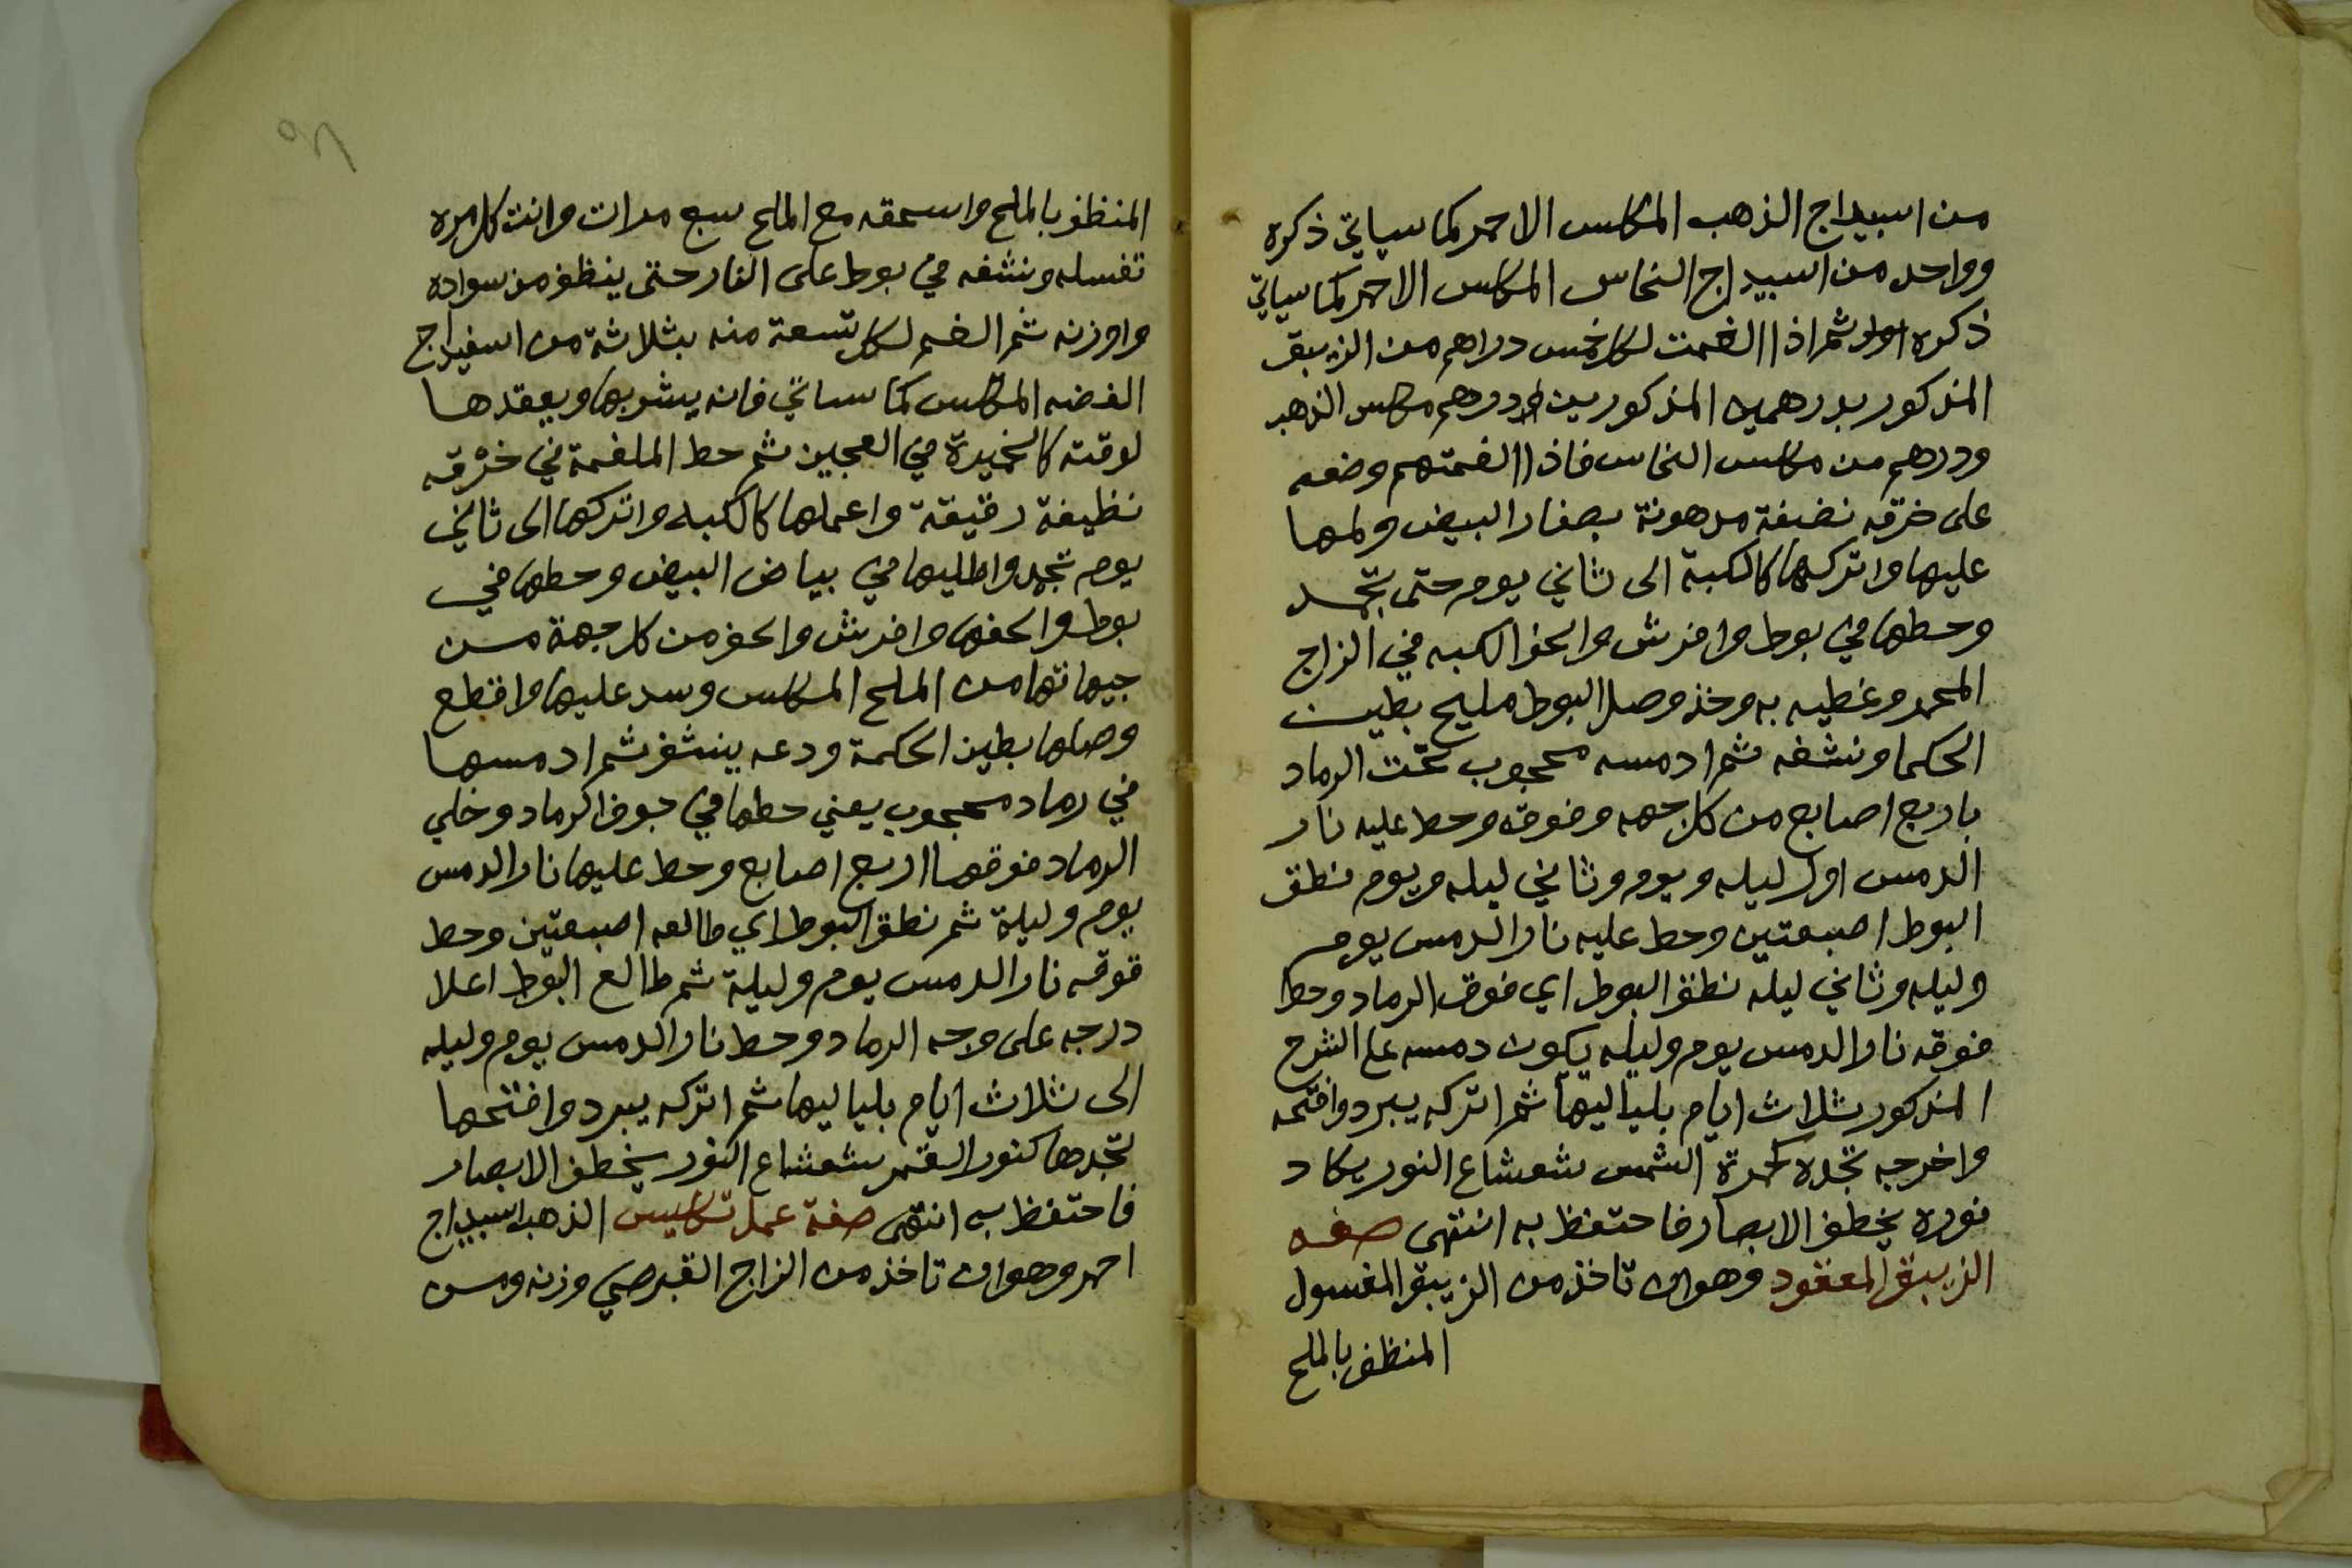 من اسبيداج الذهب المكلس الاحمر كما سياتي ذكره
وواحد من اسبيداج النحاس المكلس الاحمر كما سياتي
ذكره ثم اذا الغمت لكل خمس دراهم من الزيبق
المذكور بدرهمين المذكورين درهم مكلس الذهب
ودرهم من مكلس النحاس فاذا الغمتهم وضعه
على خرقه نضيفة مدهونة بصفار البيض ولمها
عليها واتركها كالكبة الى ثاني يوم حتى تجمد
وحطها في بوط وافرش والحف الكبه في الزاج
المحمر وغطيه به وخذ وصل البوط مليح بطين
الحكما ونشفه ثم ادمسه محجوب تحت الرماد
باربع اصابع من كل جهه وفوقه وحط عليه نار
الدمس اول ليله ويوم وثاني ليله ويوم نطق
البوط اصبعتين وحط عليه نار الدمس يوم
وليله وثاني ليله نطق البوط اي فوق الرماد وحط
فوقه نار الدمس يوم وليله يكون دمسه على الشرح
المذكور بثلاث ايام بلياليها ثم اتركه يبرد وافتحه
واخرجه تجده كحمرة الشمس شعشاع النور يكاد
نوره يخطف الابصار فاحتفظ به انتهى صفه
الزيبق المعقود وهوان تاخذ من الزيبق المغسول
المنظف بالملح
المنظف بالملح واسحقه مع الملح سبع مرات وانت كل مره
تغسله وتنشفه في بوط على النار حتى ينظف من سواده
واوزنه ثم الغم لكل تسعة منه بثلاثة من اسفيداج
الفضه المكلس كما سياتي فانه يشربها ويعقدها
لوقته كالخميرة في العجين ثم حط الملغمة في خرقه
نظيفة رقيقة واعملها كالكبه واتركها الى ثاني
يوم تجمد واطليها في بياض البيض وحطها في
بوط والحفها وافرش والحف من كل جهة من
جيهاتها من الملح المكلس وسد عليها واقطع
وصلها بطين الحكمة ودعه ينشف ثم ادمسها
في رماد محجوب يعني حطها في جوف الرماد وخلي
الرماد فوقها اربع اصابع وحط عليها نار الدمس
يوم وليلة ثم نطق البوط اي طالعه اصبعتين وحط
فوقه نار الدمس يوم وليلة ثم طالع البوط اعلا
درجه على وجه الرماد وحط نار الدمس يوم وليله
الى ثلاث ايام بلياليها ثم اتركه يبرد وافتحها
تجدها كنور القمر بشعشاع النور يخطف الابصار
فاحتفظ به انتهى صفة عمل تكليس الذهب اسبيداج
احمر وهوان تاخذ من الزاج القبرصي وزنه ومن